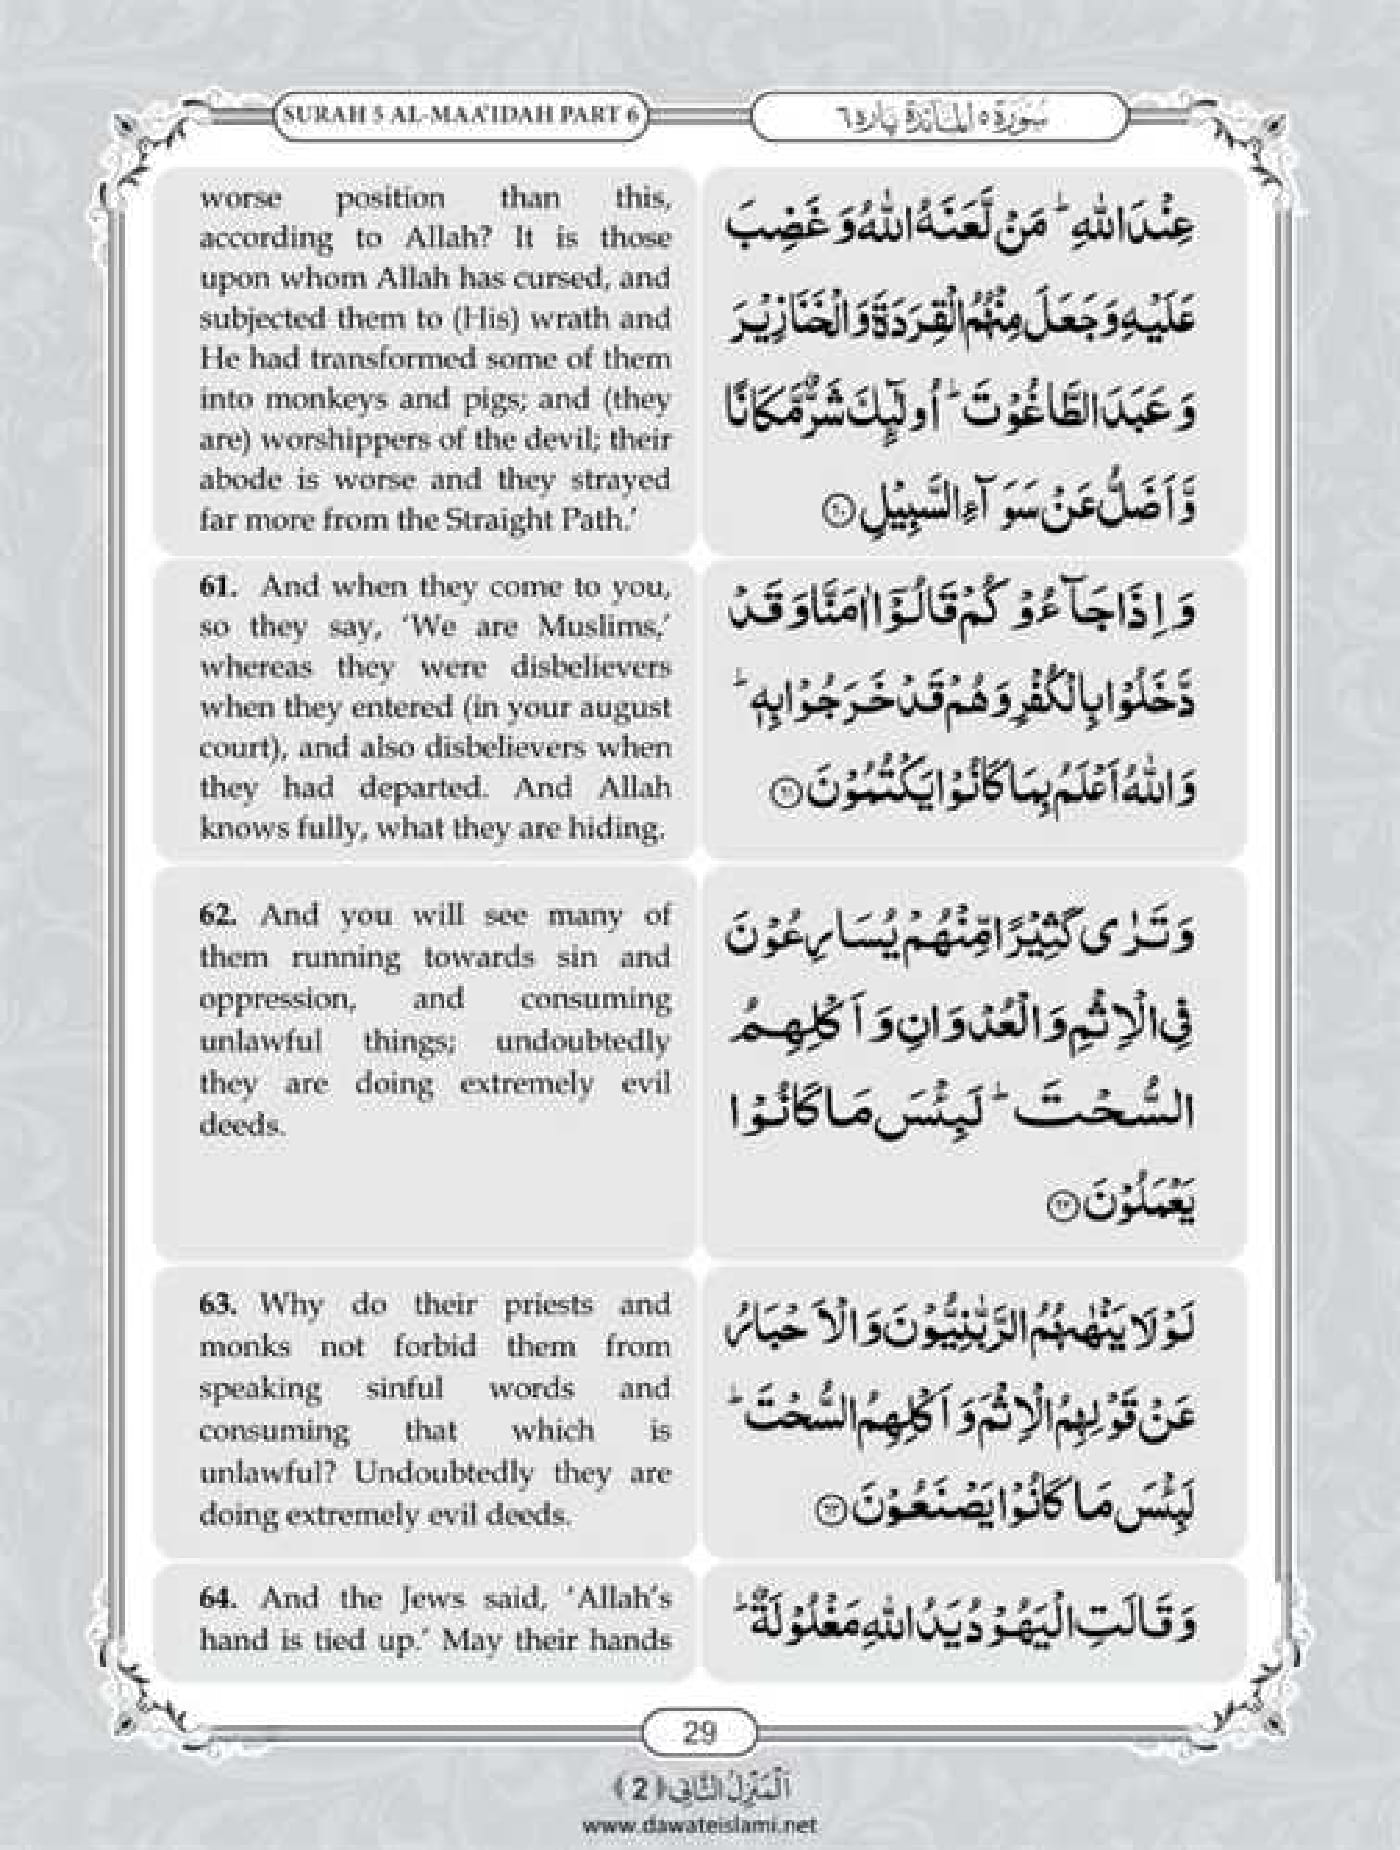 SURAH 5 AL-MAA'IDAH PART 6
سُوْرَةُ ٥ الْمَآئِدَة پاره ٦
worse position than this,
according to Allah? It is those
upon whom Allah has cursed, and
subjected them to (His) wrath and
He had transformed some of them
into monkeys and pigs; and (they
are) worshippers of the devil; their
abode is worse and they strayed
far more from the Straight Path.’
عِنْدَ اللّٰهِ ؕ مَنْ لَّعَنَهُ اللّٰهُ وَ غَضِبَ
عَلَیْهِ وَ جَعَلَ مِنْهُمُ الْقِرَدَةَ وَ الْخَنَازِیْرَ
وَ عَبَدَ الطَّاغُوْتَ ؕ اُولٰٓىٕكَ شَرٌّ مَّكَانًا
وَّ اَضَلُّ عَنْ سَوَآءِ السَّبِیْلِ ﴿۶۰﴾
61. And when they come to you,
so they say, ‘We are Muslims,’
whereas they were disbelievers
when they entered (in your august
court), and also disbelievers when
they had departed. And Allah
knows fully, what they are hiding.
وَ اِذَا جَآءُوْكُمْ قَالُوْۤا اٰمَنَّا وَ قَدْ
دَّخَلُوْا بِالْكُفْرِ وَ هُمْ قَدْ خَرَجُوْا بِهٖ ؕ
وَ اللّٰهُ اَعْلَمُ بِمَا كَانُوْا یَكْتُمُوْنَ ﴿۶۱﴾
62. And you will see many of
them running towards sin and
oppression, and consuming
unlawful things; undoubtedly
they are doing extremely evil
deeds.
وَ تَرٰى كَثِیْرًا مِّنْهُمْ یُسَارِعُوْنَ
فِی الْاِثْمِ وَ الْعُدْوَانِ وَ اَكْلِهِمُ
السُّحْتَ ؕ لَبِئْسَ مَا كَانُوْا
یَعْمَلُوْنَ ﴿۶۲﴾
63. Why do their priests and
monks not forbid them from
speaking sinful words and
consuming that which is
unlawful? Undoubtedly they are
doing extremely evil deeds.
لَوْ لَا یَنْهٰىهُمُ الرَّبّٰنِیُّوْنَ وَ الْاَحْبَارُ
عَنْ قَوْلِهِمُ الْاِثْمَ وَ اَكْلِهِمُ السُّحْتَ ؕ
لَبِئْسَ مَا كَانُوْا یَصْنَعُوْنَ ﴿۶۳﴾
64. And the Jews said, ‘Allah’s
hand is tied up.’ May their hands
وَ قَالَتِ الْیَهُوْدُ یَدُ اللّٰهِ مَغْلُوْلَةٌ ؕ
29
اَلْمَنْزِلُ الثَّانِی ﴿2﴾
www.dawateislami.net